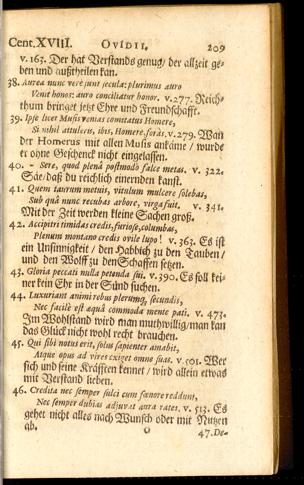 Cent. XVIII. OVIDII. 209
v. 163. Der hat Verstands genug/ der allzeit ge-
ben und außtheilen kan.
38. Aurea nunc vere sunt secula; plurimus auro
Venit honos: auro conciliatur honor. v. 277. Reich-
thum bringet jetzt Ehre und Freundschafft.
39. Ipse licet Musis venias comitatus Homere,
Si nihil attuleris, ibis, Homere, foras. v. 279. Wan
der Homerus mit allen Musis ankäme/ wurde
er ohne Geschenck nicht eingelassen.
40. - Sere, quod plenâ postmodo falce metas. v. 322.
Säe/ daß du reichlich einernden kanst.
41. Quem taurum metuis, vitulum mulcere solebas,
Sub quâ nunc recubas arbore, virga fuit. v. 341.
Mit der Zeit werden kleine Sachen groß.
42. Accipitri timidas credis, furiose, columbas,
Plenum montano credis ovile lupo! v. 363. Es ist
ein Unsinnigkeit/ den Habbich zu den Tauben/
und den Wolff zu den Schaffen setzen.
43. Gloria peccati nulla petenda sui. v. 390. Es soll kei-
ner kein Ehr in der Sünd suchen.
44. Luxuriant animi rebus plerumq; secundis,
Nec facilè est aquâ commoda mente pati. v. 473.
Im Wohlstand wird man muthwillig/ man kan
das Glück nicht wohl recht brauchen.
45. Qui sibi notus erit, solus sapienter amabit,
Atque opus ad vires exiget omne suas. v. 501. Wer
sich und seine Kräfften kennet/ wird allein etwas
mit Verstand lieben.
46. Credita nec semper sulci cum fœnore reddunt,
Nec semper dubias adjuvat aura rates. v. 513. Es
gehet nicht alles nach Wunsch oder mit Nutzen
ab.
O 47. De-